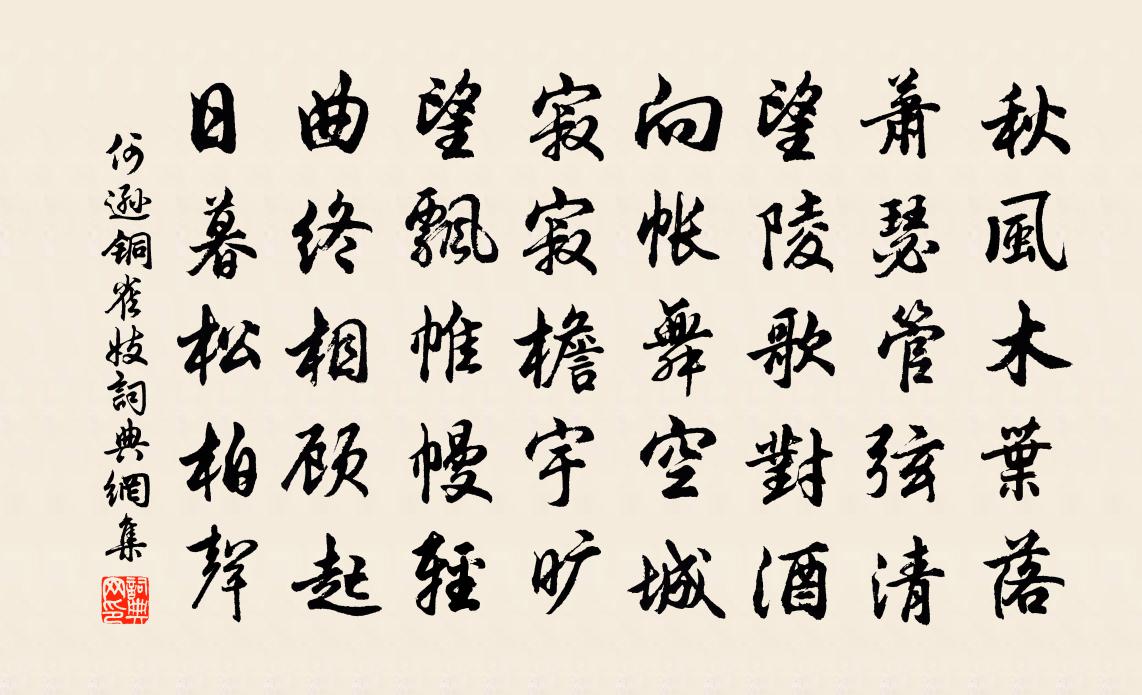 秋風木葉落
蕭瑟管弦清
望陵歌對酒
向帳舞空城
寂寂檐宇旷
望飄帷幔輕
曲終相顾起
日暮松柏聲
何遜銅雀妓詞典網集
詞典网印